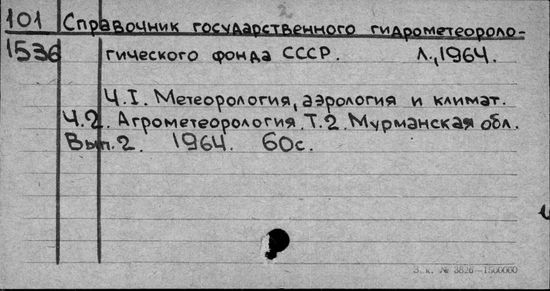 2
101 Справочник государственного гидрометеороло-
1536 гического фонда СССР. Л., 1964.
Ч.I. Метеорология, аэрология и климат.
Ч.2. Агрометеорология. Т.2. Мурманская обл.
Вып.2. 1964. 60с.
Зак. № 3826—1500000